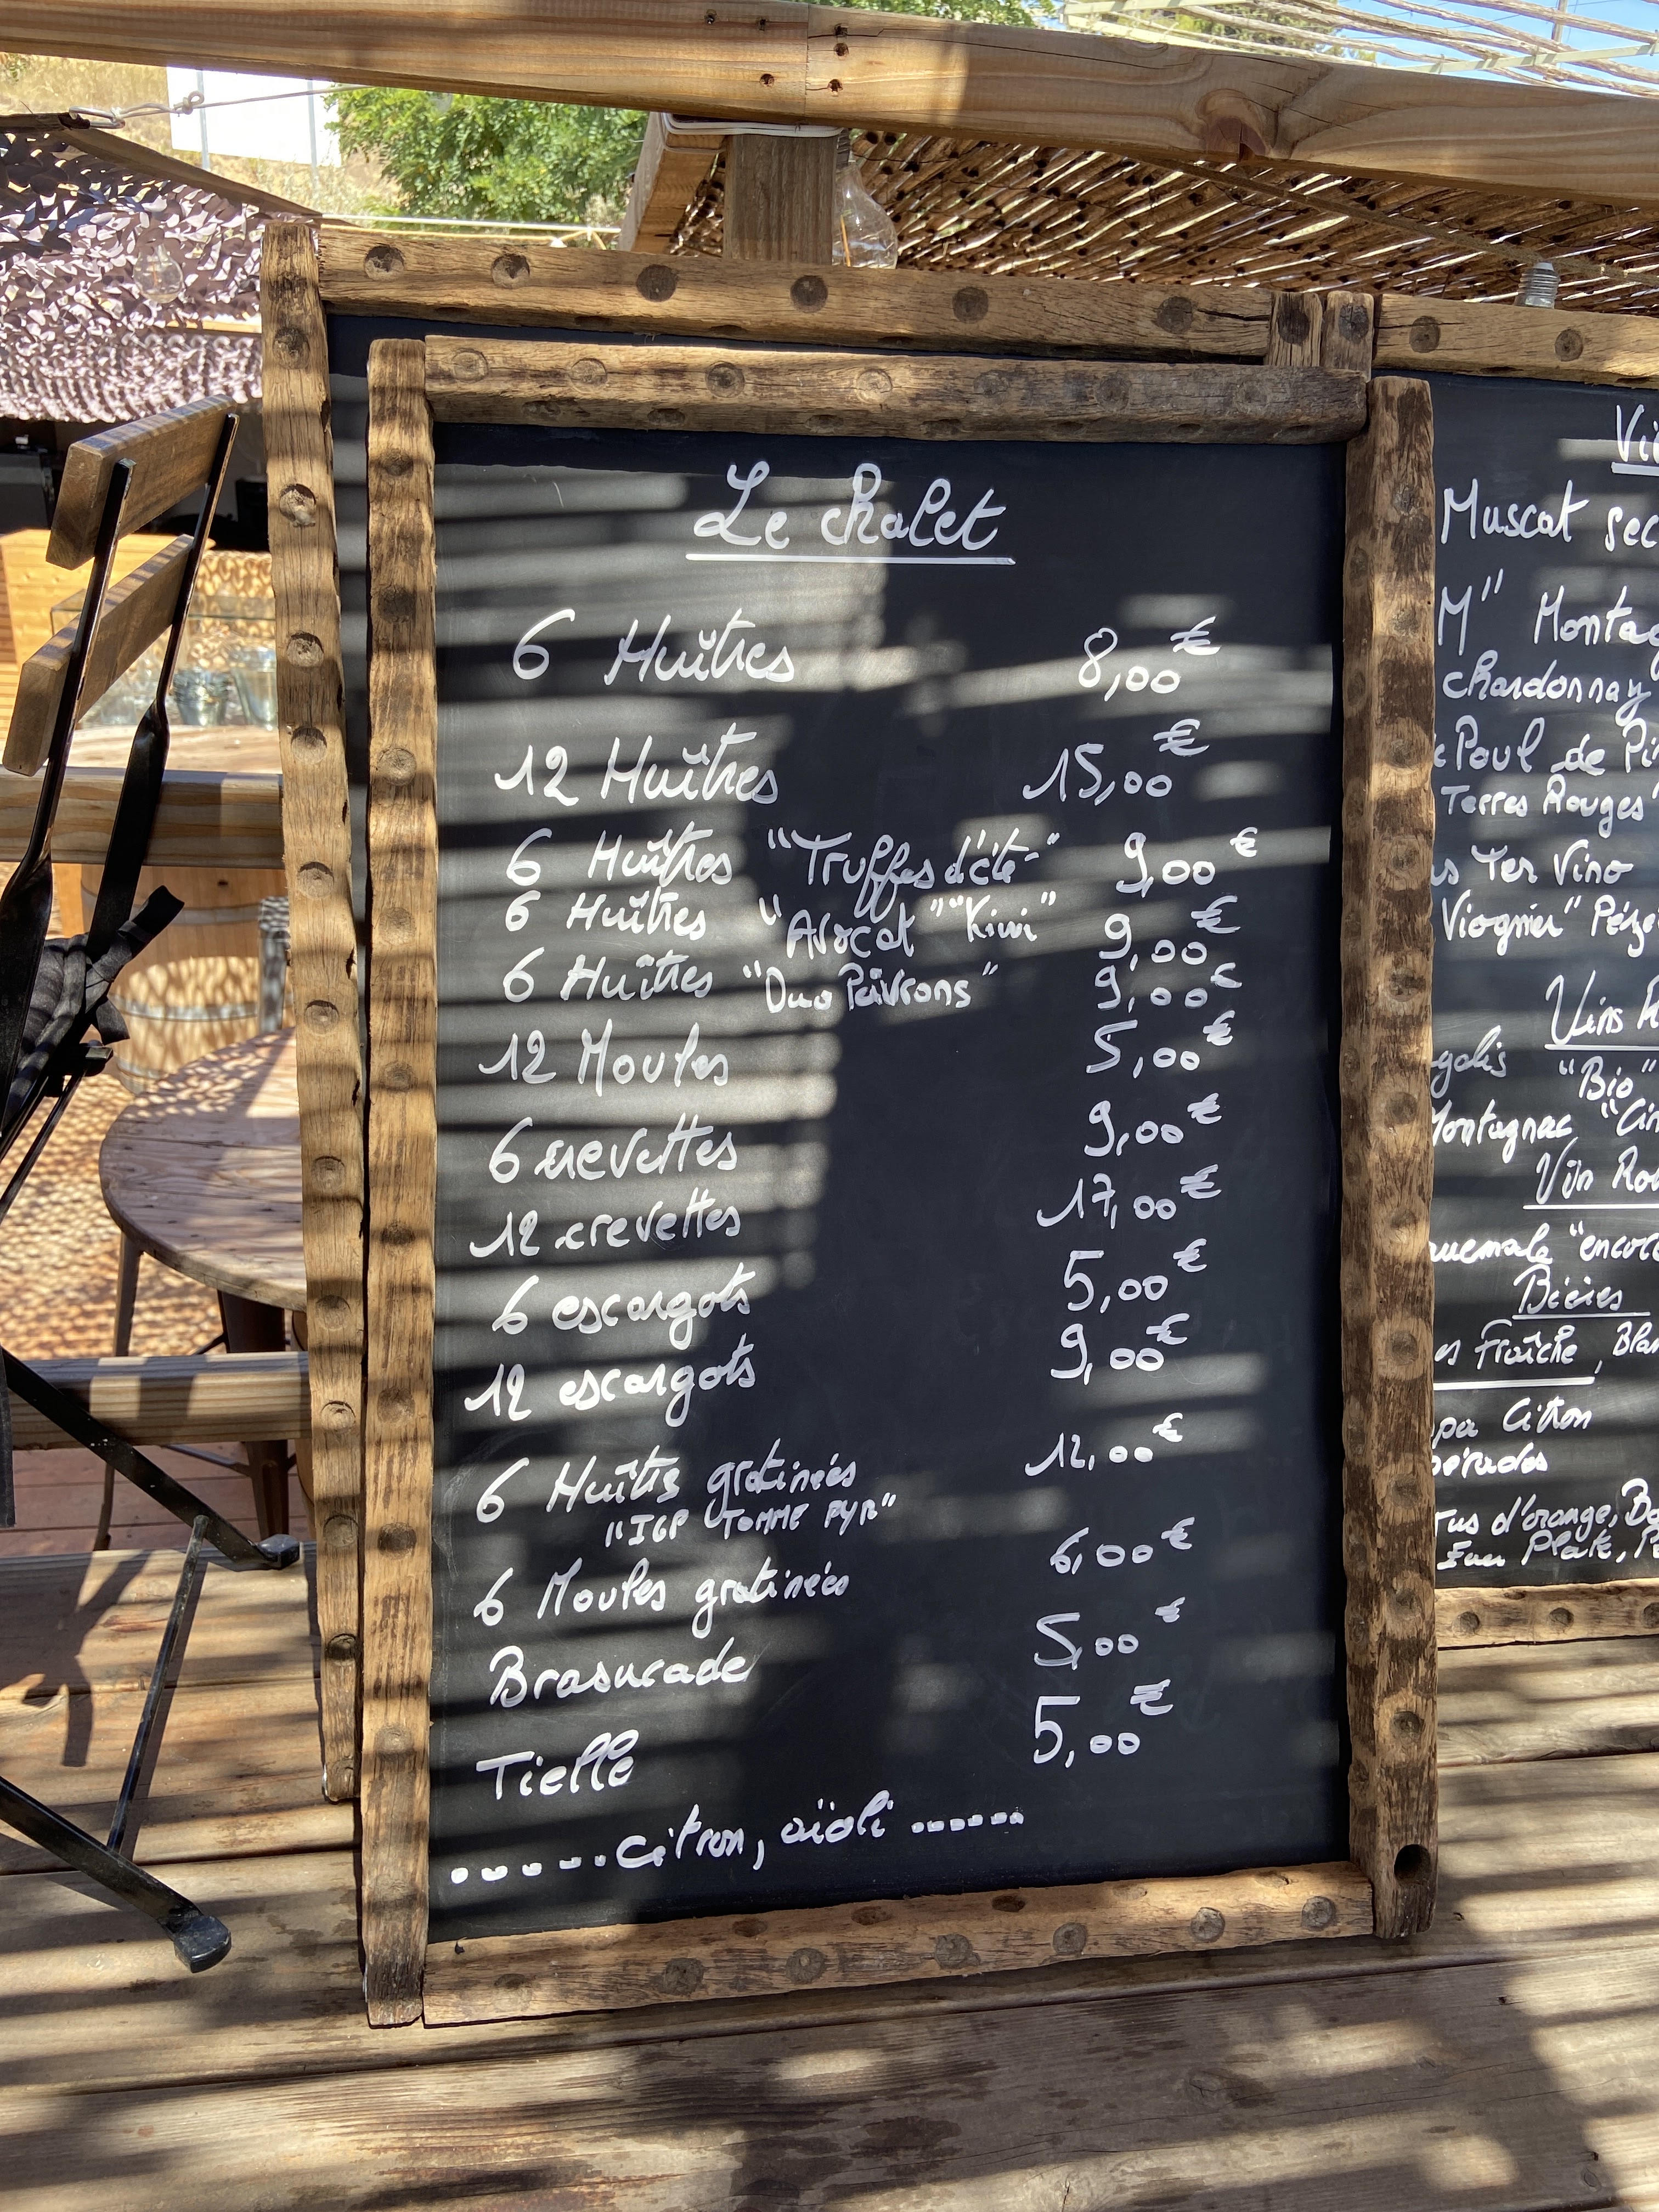 Le chalet
6 Huîtres 8,00€
12 Huîtres 15,00€
6 Huîtres "Truffes d'été" 9,00€
6 Huîtres "Avocat" "Kiwi" 9,00€
6 Huîtres "Duo Poivrons" 9,00€
12 Moules 5,00€
6 crevettes 9,00€
12 crevettes 17,00€
6 escargots 5,00€
12 escargots 9,00€
6 Huîtres gratinées 12,00€
"IGP TOMME PYR"
6 Moules gratinées 6,00€
Brasucade 5,00€
Tielle 5,00€
.....citron, aïoli ......
Vi
Muscat sec
M" Montag
chardonnay
Poul de Pi
Terres Rouges"
Ter Vino
Viognier" Péze
Vins R
"Bio"
Montagnac "Cin
Vin Rou
"encore
Bières
Fraîche, Blan
Citron
Jus d'orange, Ba
Eau Plate, P